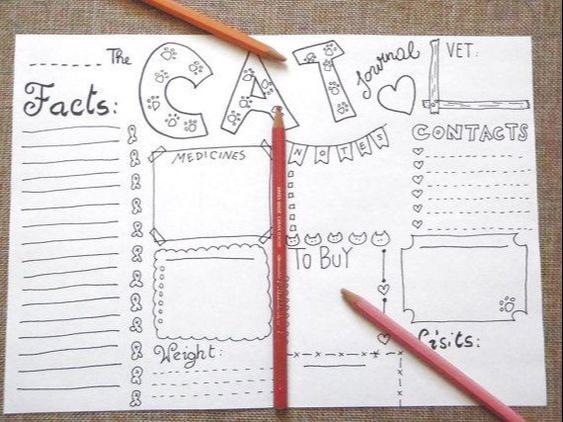 The CAT Journal
VET:
Facts:
CONTACTS
MEDICINES
NOTES
TO BUY
Visits:
Weight: